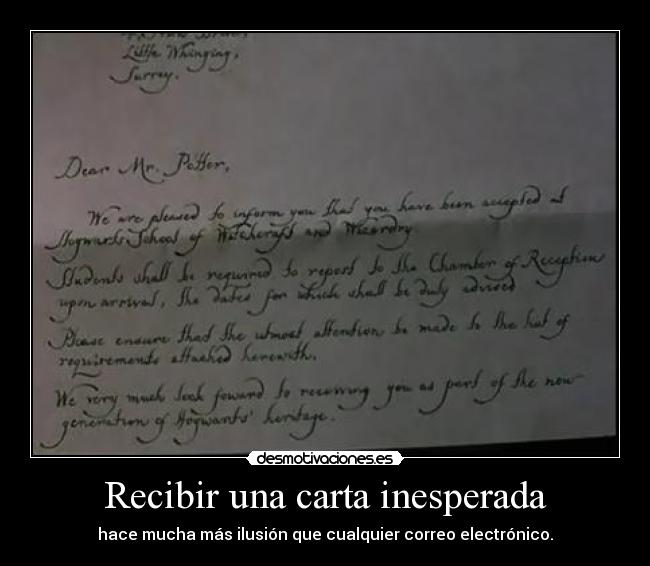 Little Whinging,
Surrey.
Dear Mr. Potter,
We are pleased to inform you that you have been accepted at
Hogwarts School of Witchcraft and Wizardry.
Students shall be required to report to the Chamber of Reception
upon arrival, the dates for which shall be duly advised
Please ensure that the utmost attention be made to the list of
requirements attached herewith.
We very much look foward to receiving you as part of the new
generation of Hogwarts' heritage.
desmotivaciones.es
Recibir una carta inesperada
hace mucha más ilusión que cualquier correo electrónico.